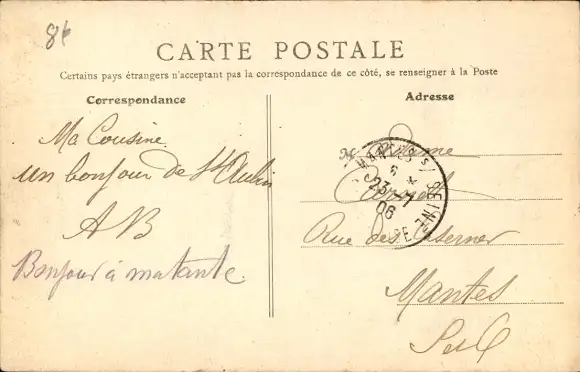 CARTE POSTALE
Certains pays étrangers n'acceptant pas la correspondance de ce côté, se renseigner à la Poste
Correspondance
Adresse
Ma Cousine
un bonjour de St Aubin
AB
Bonjour à ma tante.
MANTES
6
23 - 7
06
SEINE
Rue des
Mantes
S et O